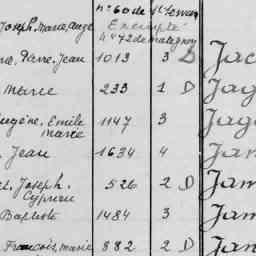 n° 60 de St Servan
Joseph, Marie, Ange Exempté
n° 72 de Matignon
Pierre, Jean 1013 3 D Jac
Marie 233 1 D Jag
Eugène, Emile 1147 3 Jag
Marie
Jean 1634 4 Jan
Joseph, 526 2 D Jam
Cyprien
Baptiste 1484 3 Jam
François, Marie 882 2 D Jan